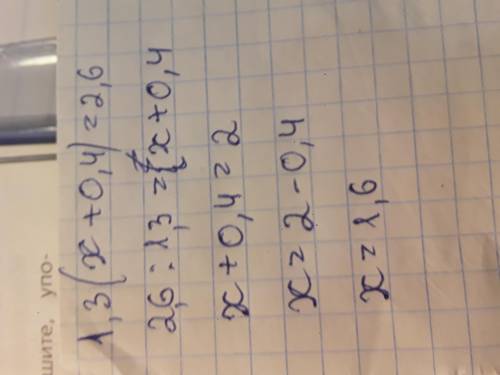 1,3(x+0,4)=2,6
2,6:1,3=x+0,4
x+0,4=2
x=2-0,4
x=1,6
шите, упо-